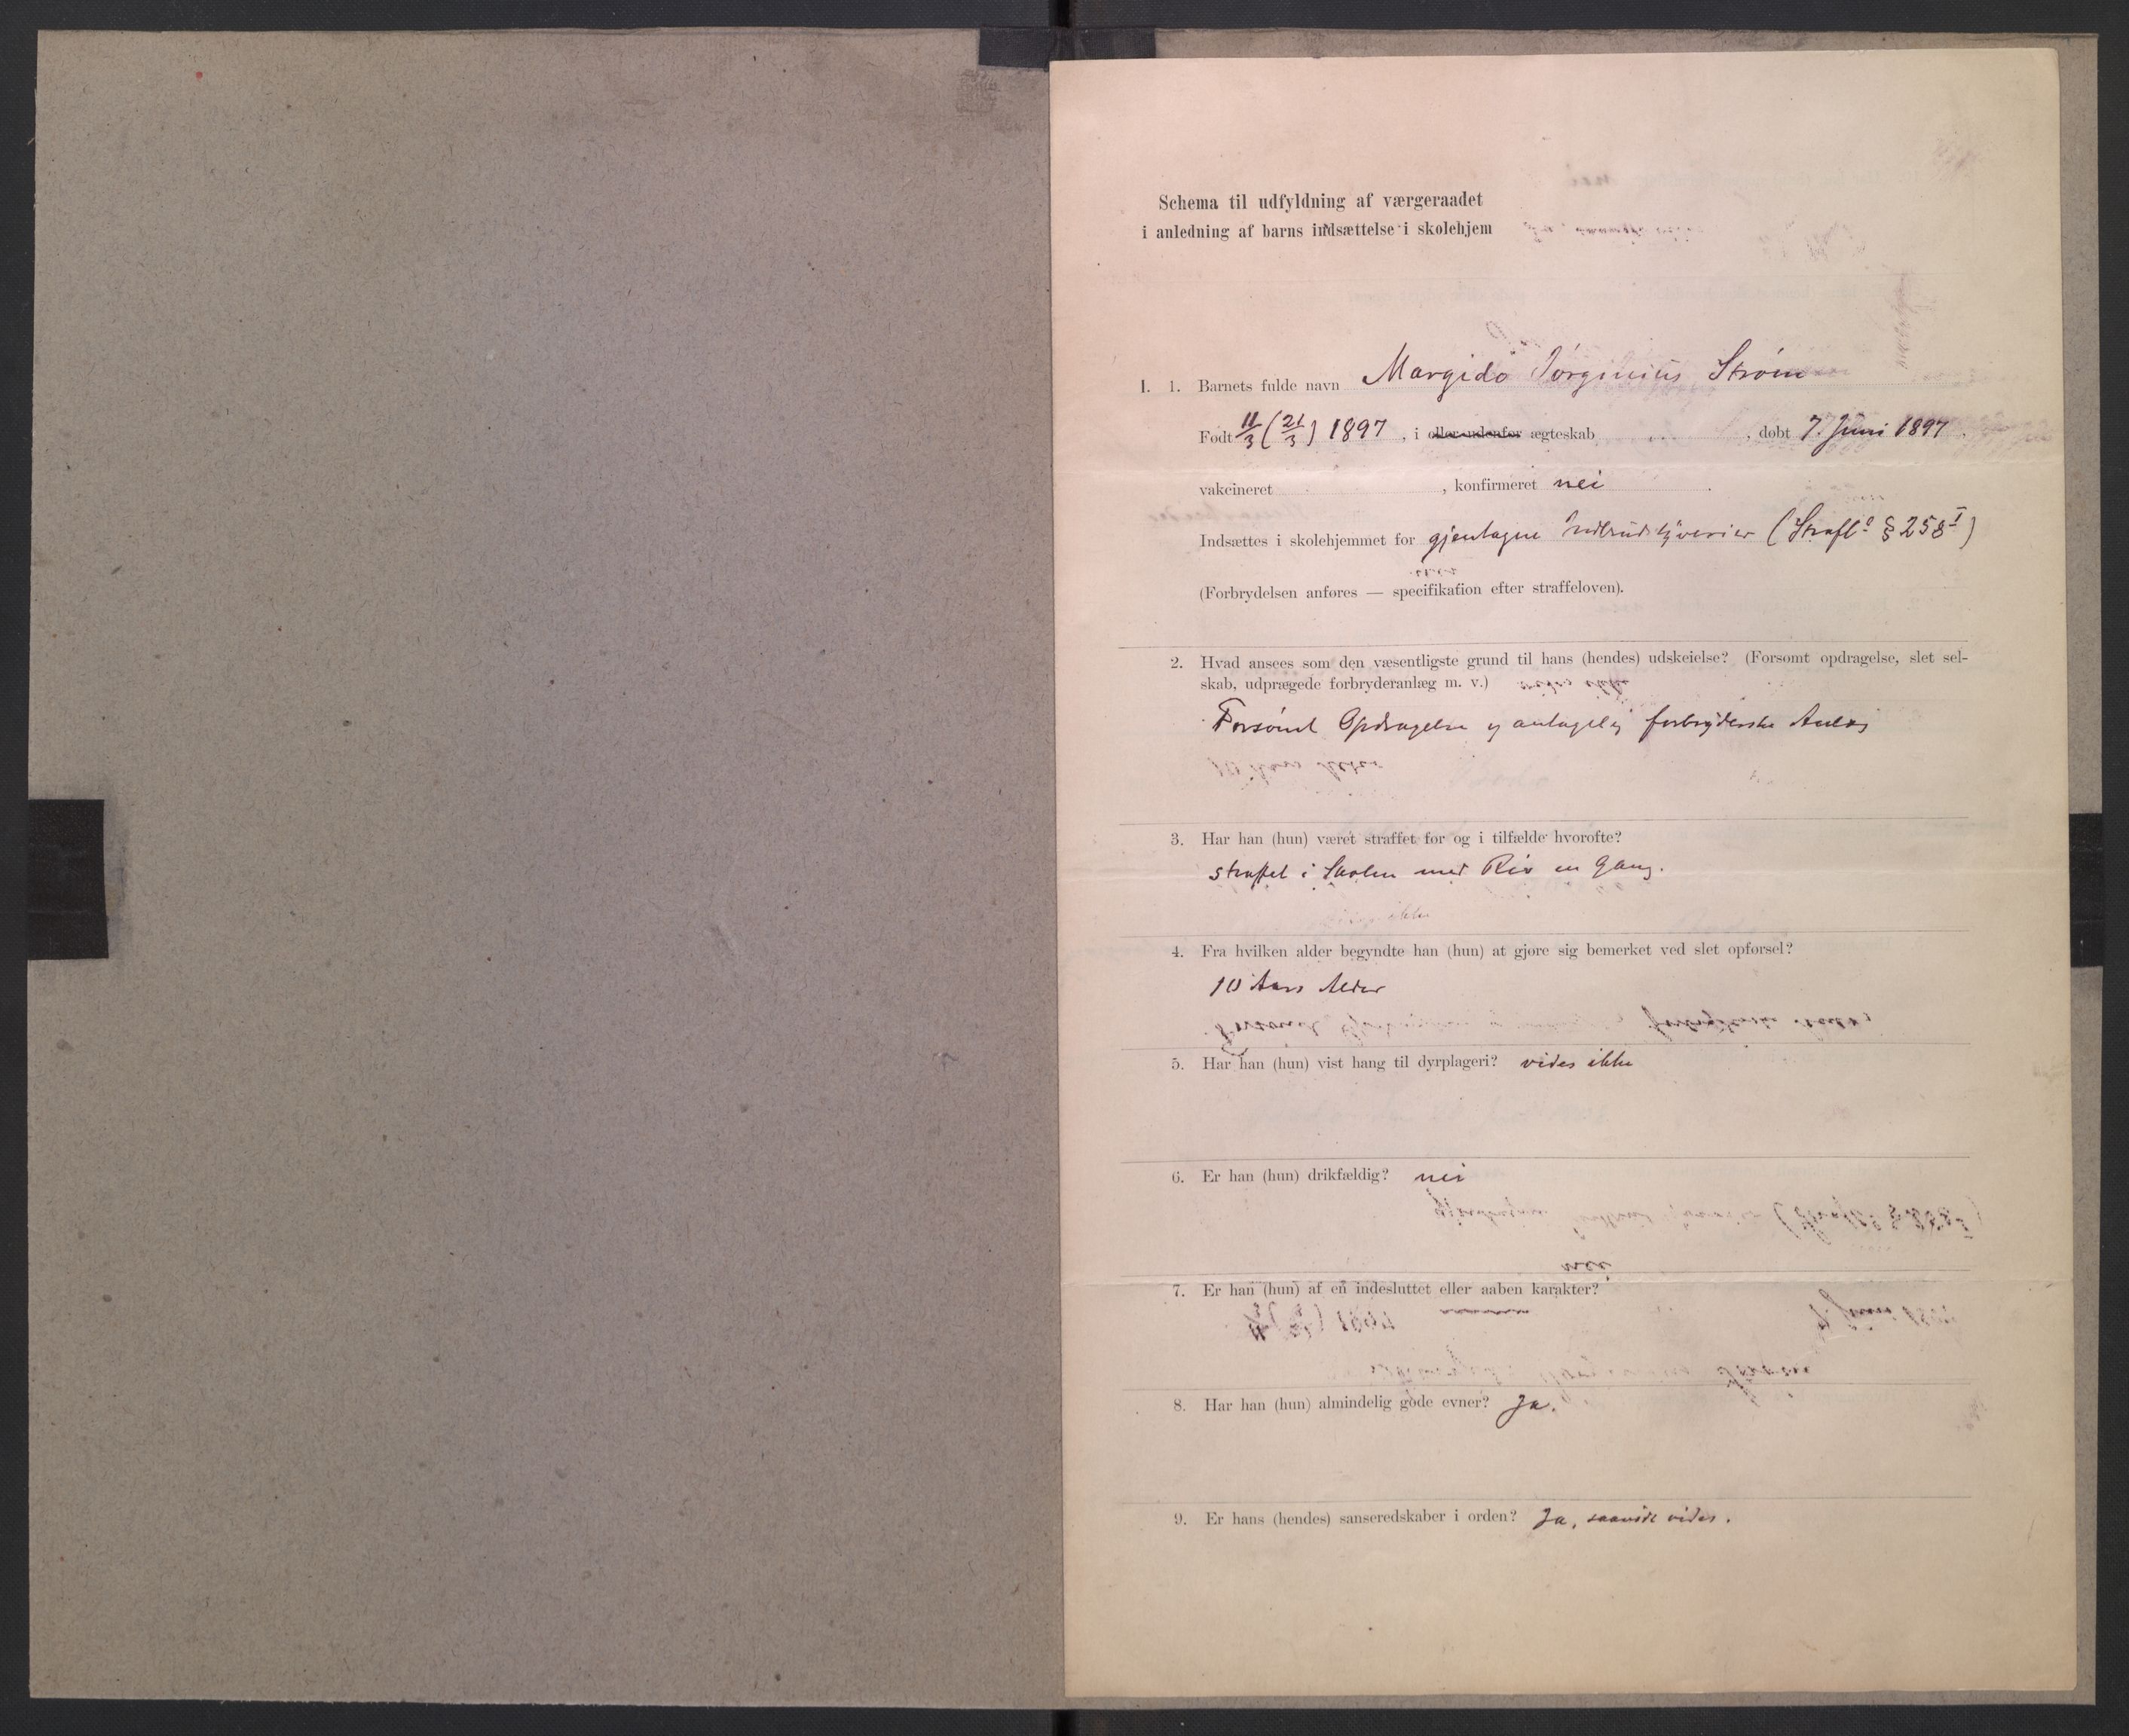 Schema til udfyldning af værgeraadet
i anledning af barns indsættelse i skolehjem
I. 1. Barnets fulde navn Margido Jørginius Strøm
Født 11/3 (21/3) 1897, i eller udenfor ægteskab , døbt 7. Juni 1897.
vakcineret , konfirmeret nei
Indsættes i skolehjemmet for gjentagne Indbrudstyverier (Strafl. § 258 I)
(Forbrydelsen anføres — specifikation efter straffeloven).
2. Hvad ansees som den væsentligste grund til hans (hendes) udskeielse? (Forsømt opdragelse, slet sel-
skab, udprægede forbryderanlæg m. v.)
Forsømt Opdragelse og antagelig forbryderske Anlæg
3. Har han (hun) været straffet før og i tilfælde hvorofte?
straffet i Skolen med Ris en Gang.
4. Fra hvilken alder begyndte han (hun) at gjøre sig bemerket ved slet opførsel?
10 Aars Alder
5. Har han (hun) vist hang til dyrplageri? vides ikke
6. Er han (hun) drikfældig? nei
7. Er han (hun) af en indesluttet eller aaben karakter?
8. Har han (hun) almindelig gode evner? Ja.
9. Er hans (hendes) sanseredskaber i orden? Ja, saavidt vides.